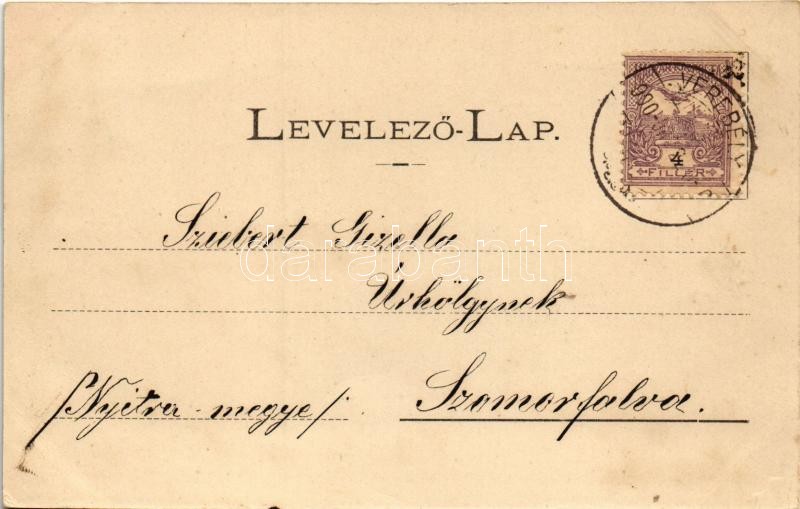 LEVELEZŐ-LAP.
VEREBÉLY
4
FILLÉR
Sziebert Gizella
darabanth
Úrhölgynek
/Nyitra-megye/ Szomorfalva.